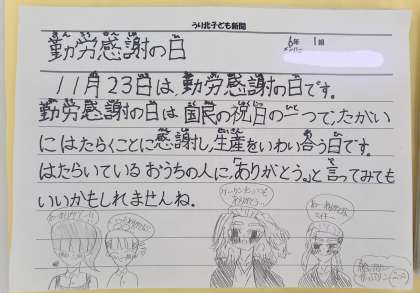 うり北子ども新聞
勤労感謝の日
6年 1組
メンバー
11月23日は、勤労感謝の日です。
勤労感謝の日は国民の祝日の一つで、たがい
にはたらくことに感謝し、生産をいわい合う日です。
はたらいているおうちの人に、「ありがとう。」と言ってみても
いいかもしれませんね。